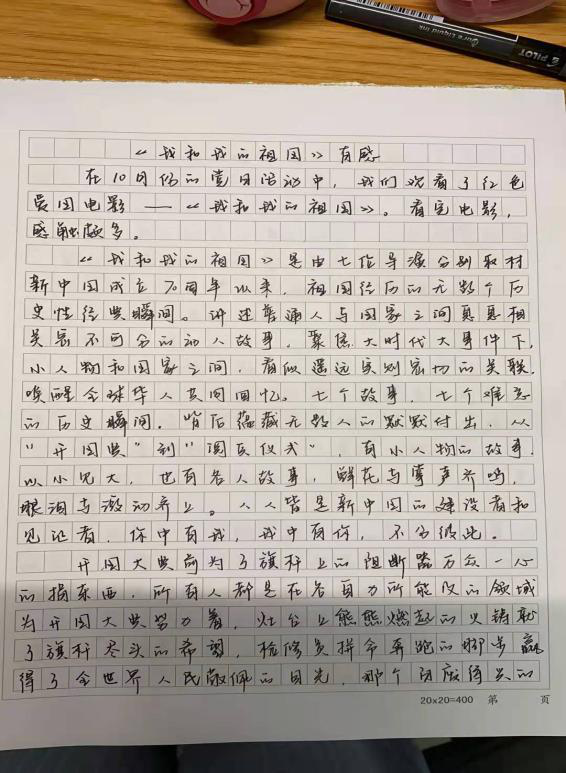 Pure Liquid Ink
PILOT
《我和我的祖国》有感
在10月份的党日活动中，我们观看了红色
爱国电影——《我和我的祖国》。看完电影，
感触颇多。
《我和我的祖国》是由七位导演分别取材
新中国成立70周年以来，祖国经历的无数个历
史性经典瞬间。讲述普通人与国家之间息息相
关密不可分的动人故事，聚焦大时代大事件下，
小人物和国家之间，看似遥远实则密切的关联，
唤醒全球华人共同回忆。七个故事，七个难忘
的历史瞬间，背后蕴藏无数人的默默付出，从
"开国典"到"阅兵仪式"，有小人物的故事，
以小见大，也有名人故事，鲜花与掌声齐鸣，
眼泪与激动并上。人人皆是新中国的建设者和
见证者，你中有我，我中有你，不分彼此。
开国大典前为了旗杆上的阻断器万众一心
的捐东西，所有人都是在各自力所能及的领域
为开国大典努力着，灶台上熊熊燃起的火铸就
了旗杆尽头的希望，检修员拼命奔跑的脚步赢
得了全世界人民敬佩的目光，那个的
20×20=400 第 页